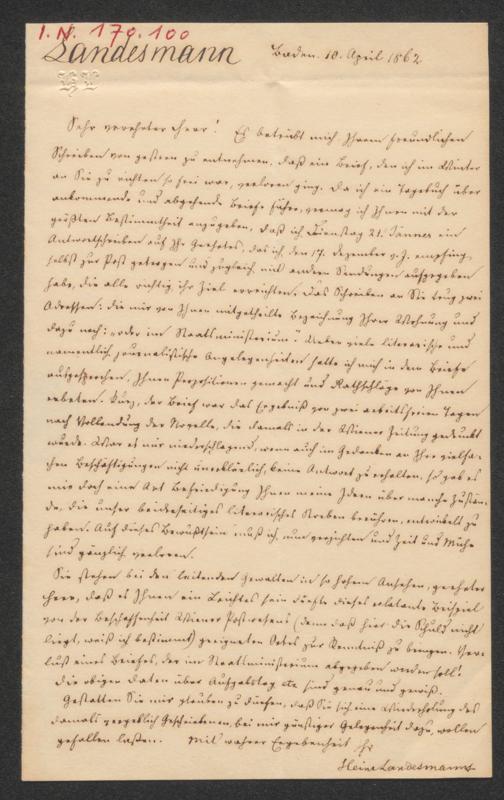 I.N. 170.100
Landesmann
Baden. 10. April 1862
HL
Sehr verehrter Herr! Es betrübt mich Ihrem freundlichen
Schreiben von gestern zu entnehmen, daß ein Brief, den ich im Winter
an Sie zu richten so frei war, verloren ging. Da ich ein Tagebuch über
ankommende und abgehende Briefe führe, vermag ich Ihnen mit der
größten Bestimmtheit anzugeben, daß ich Dienstag 21. Jänner ein
Antwortschreiben auf Ihr Geehrtes, das ich den 17. Dezember v. J. empfing,
selbst zur Post getragen und zugleich mit andern Sendungen aufgegeben
habe, die alle richtig ihr Ziel erreichten. Das Schreiben an Sie trug zwei
Adressen: die mir von Ihnen mitgetheilte Bezeichnung Ihrer Wohnung und
dazu noch: „oder im Staatsministerium“. Ueber viele literarische und
namentlich journalistische Angelegenheiten hatte ich mich in dem Briefe
ausgesprochen, Ihnen Propositionen gemacht und Rathschläge von Ihnen
erbeten. Kurz, der Brief war das Ergebniß von zwei arbeitsfreien Tagen
nach Vollendung der Novelle, die damals in der Wiener Zeitung gedruckt
wurde. War es nur niederschlagend, wenn auch im Gedanken an Ihre vielfa-
chen Beschäftigungen nicht unerklärlich, keine Antwort zu erhalten, so gab es
mir doch eine Art Befriedigung Ihnen meine Ideen über manche Zustän-
de, die unser beiderseitiges literarisches Streben berühren, entwickelt zu
haben. Auf dieses Bewußtsein muß ich nun verzichten und Zeit und Mühe
sind gänzlich verloren.
Sie stehen bei den leitenden Gewalten in so hohem Ansehen, geehrter
Herr, daß es Ihnen ein Leichtes sein dürfte dieses eclatante Beispiel
von der Beschaffenheit Wiener Postwesens (denn daß hier die Schuld nicht
liegt, weiß ich bestimmt) geeigneten Ortes zur Kenntniß zu bringen. Ver-
lust eines Briefes, der im Staatsministerium abgegeben werden soll!
Die obigen Daten über Aufgabstag etc sind genau und gewiß.
Gestatten Sie mir glauben zu dürfen, daß Sie sich eine Wiederholung des
damals vergeblich Geschriebenen, bei mir günstiger Gelegenheit dazu, wollen
gefallen lassen. Mit wahrer Ergebenheit Ihr
Heinr. Landesmann